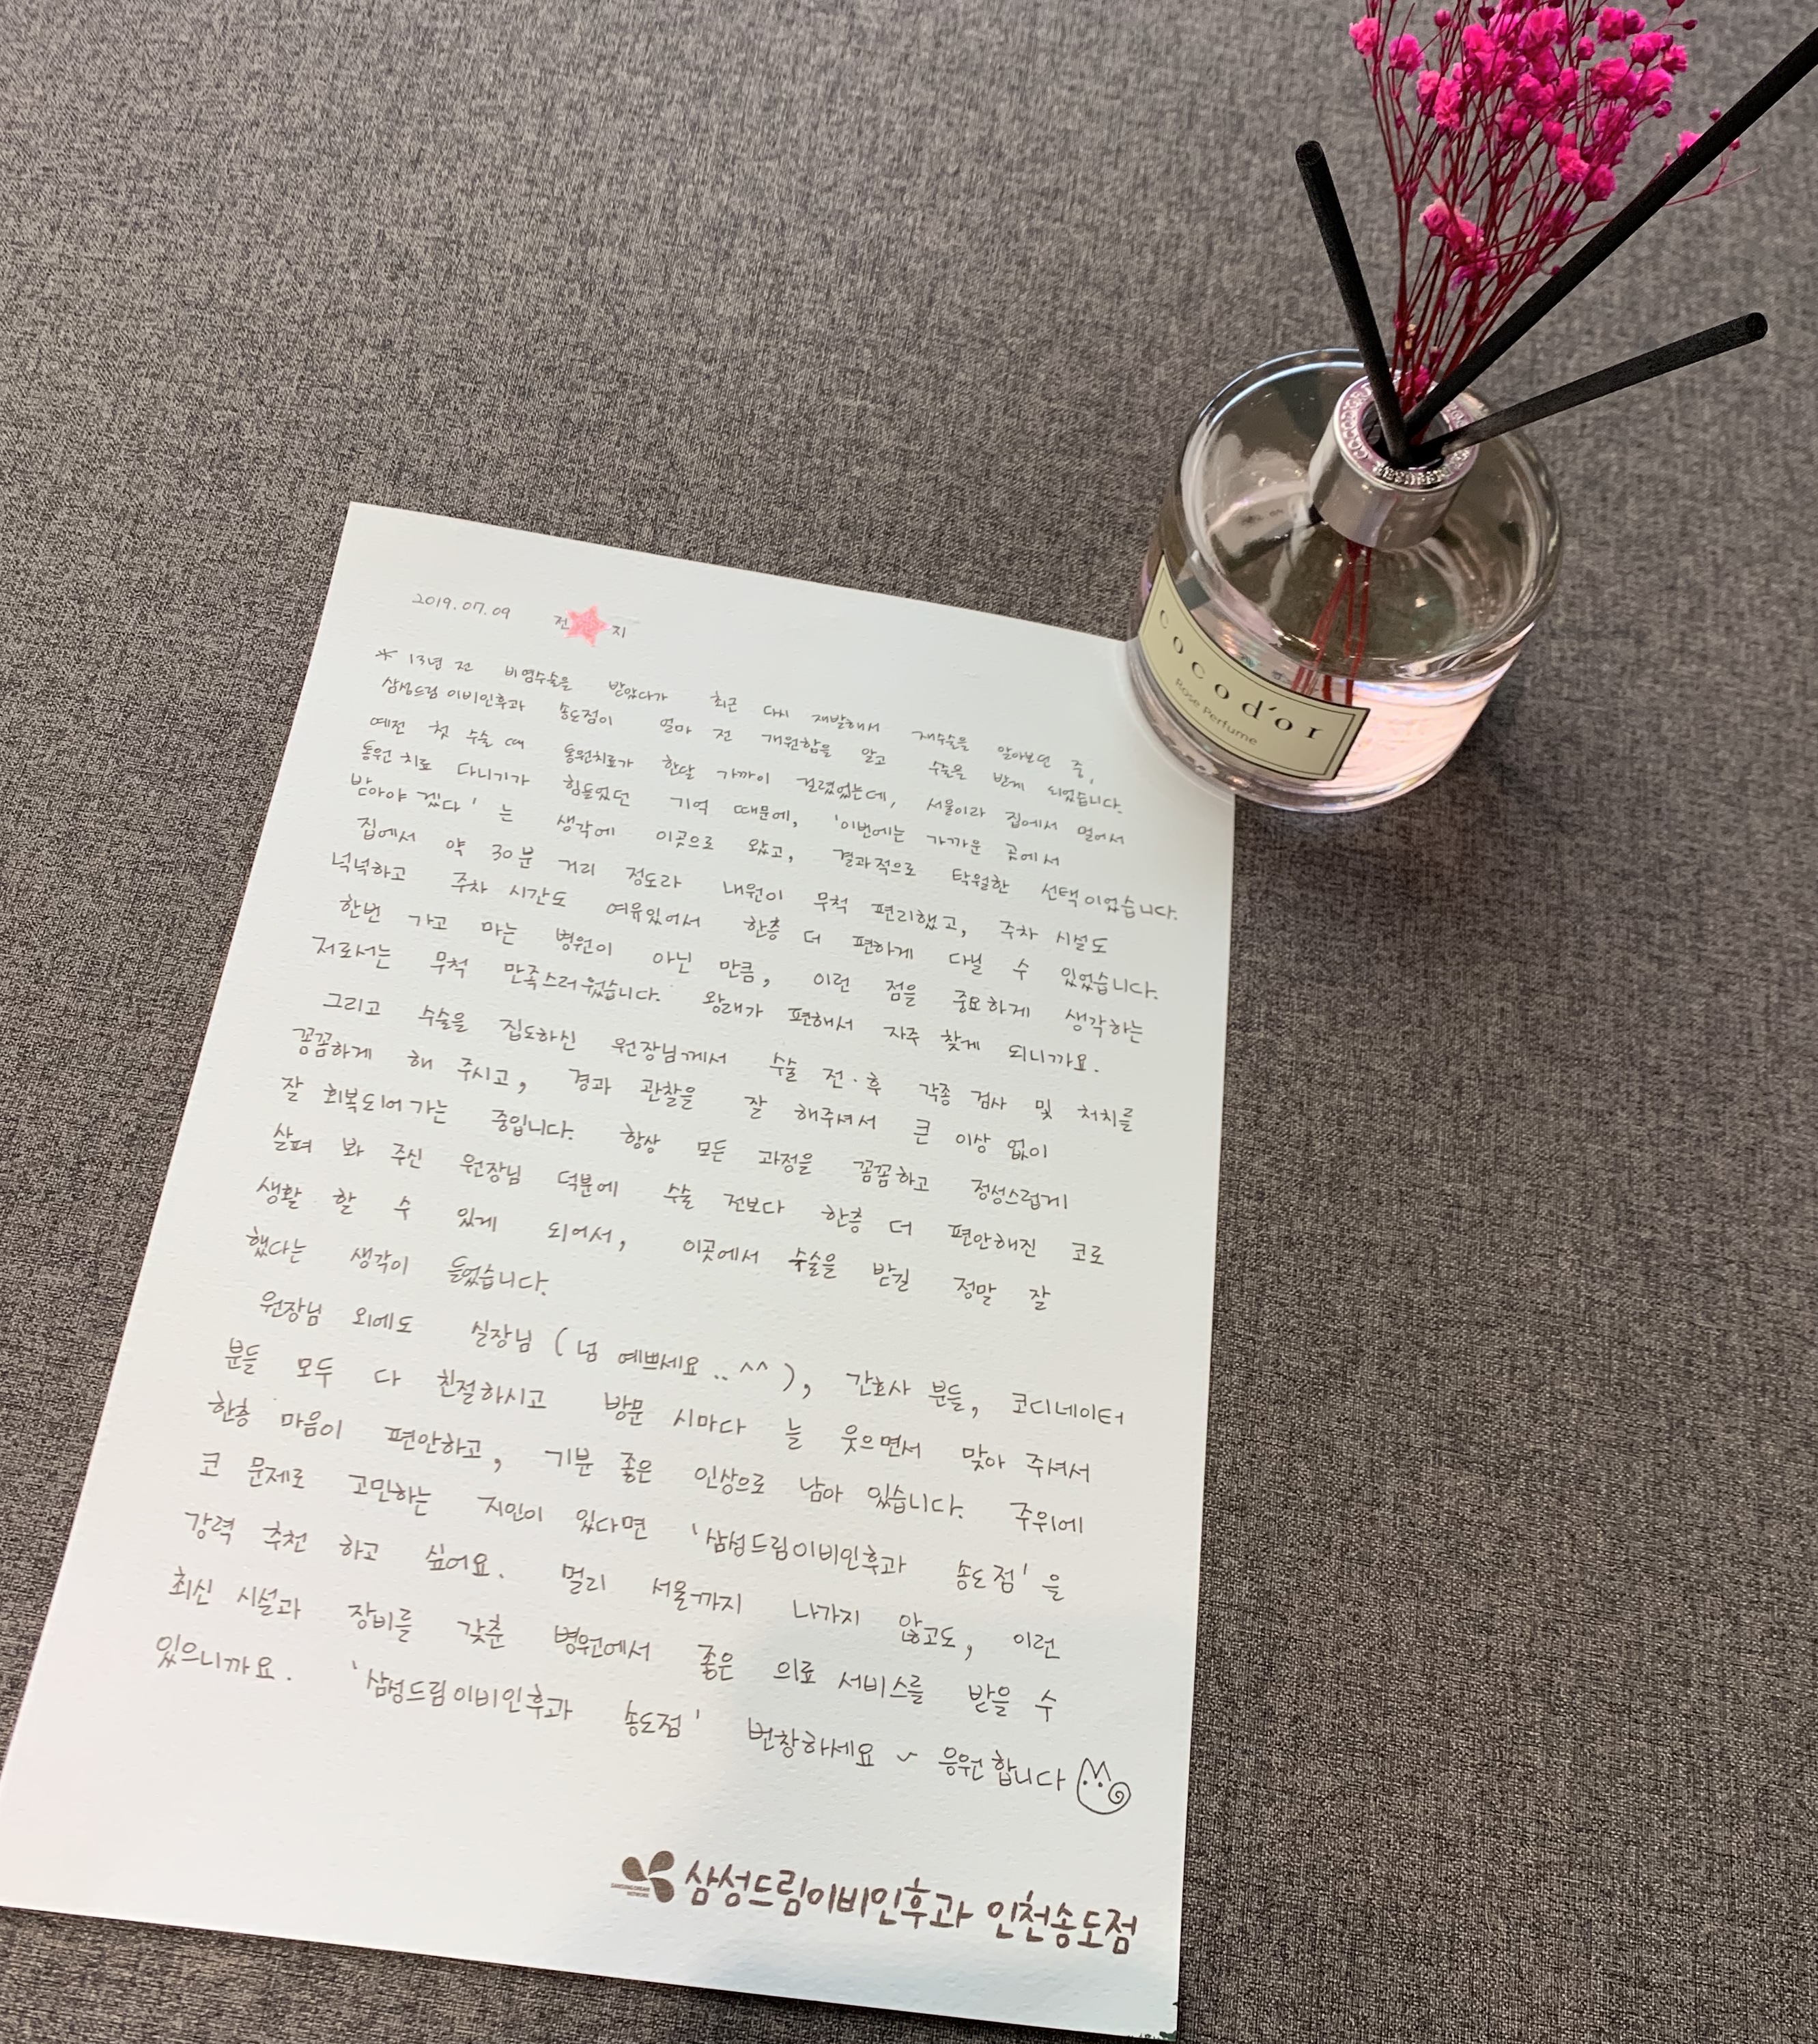 2019.07.09 전 지
* 13년 전 비염수술을 받았다가 최근 다시 재발해서 재수술을 알아보던 중,
삼성드림이비인후과 송도점이 얼마 전 개원함을 알고 수술을 받게 되었습니다.
예전 첫 수술 때 통원치료가 한달 가까이 걸렸었는데, 서울이라 집에서 멀어서
통원 치료 다니기가 힘들었던 기억 때문에, '이번에는 가까운 곳에서
받아야 겠다' 는 생각에 이곳으로 왔고, 결과적으로 탁월한 선택이었습니다.
집에서 약 30분 거리 정도라 내원이 무척 편리했고, 주차 시설도
넉넉하고 주차 시간도 여유있어서 한층 더 편하게 다닐 수 있었습니다.
한번 가고 마는 병원이 아닌 만큼, 이런 점을 중요하게 생각하는
저로서는 무척 만족스러웠습니다. 왕래가 편해서 자주 찾게 되니까요.
그리고 수술을 집도하신 원장님께서 수술 전·후 각종 검사 및 처치를
꼼꼼하게 해 주시고, 경과 관찰을 잘 해주셔서 큰 이상 없이
잘 회복되어 가는 중입니다. 항상 모든 과정을 꼼꼼하고 정성스럽게
살펴 봐 주신 원장님 덕분에 수술 전보다 한층 더 편안해진 코로
생활 할 수 있게 되어서, 이곳에서 수술을 받길 정말 잘
했다는 생각이 들었습니다.
원장님 외에도 실장님 (넘 예쁘세요..^^), 간호사 분들, 코디네이터
분들 모두 다 친절하시고 방문 시마다 늘 웃으면서 맞아 주셔서
한층 마음이 편안하고, 기분 좋은 인상으로 남아 있습니다. 주위에
코 문제로 고민하는 지인이 있다면 '삼성드림이비인후과 송도점'을
강력 추천 하고 싶어요. 멀리 서울까지 나가지 않고도, 이런
최신 시설과 장비를 갖춘 병원에서 좋은 의료 서비스를 받을 수
있으니까요. '삼성드림이비인후과 송도점' 번창하세요 ~ 응원합니다
삼성드림이비인후과 인천송도점
cocod'or
Rose Perfume